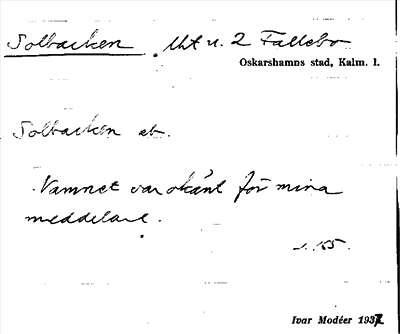 Solbacken lht u. 2 Fallebo
Oskarshamns stad, Kalm. l.
Solbacken ab.
Namnet var okänt för mina
meddelare.
s. 155.
Ivar Modéer 1937